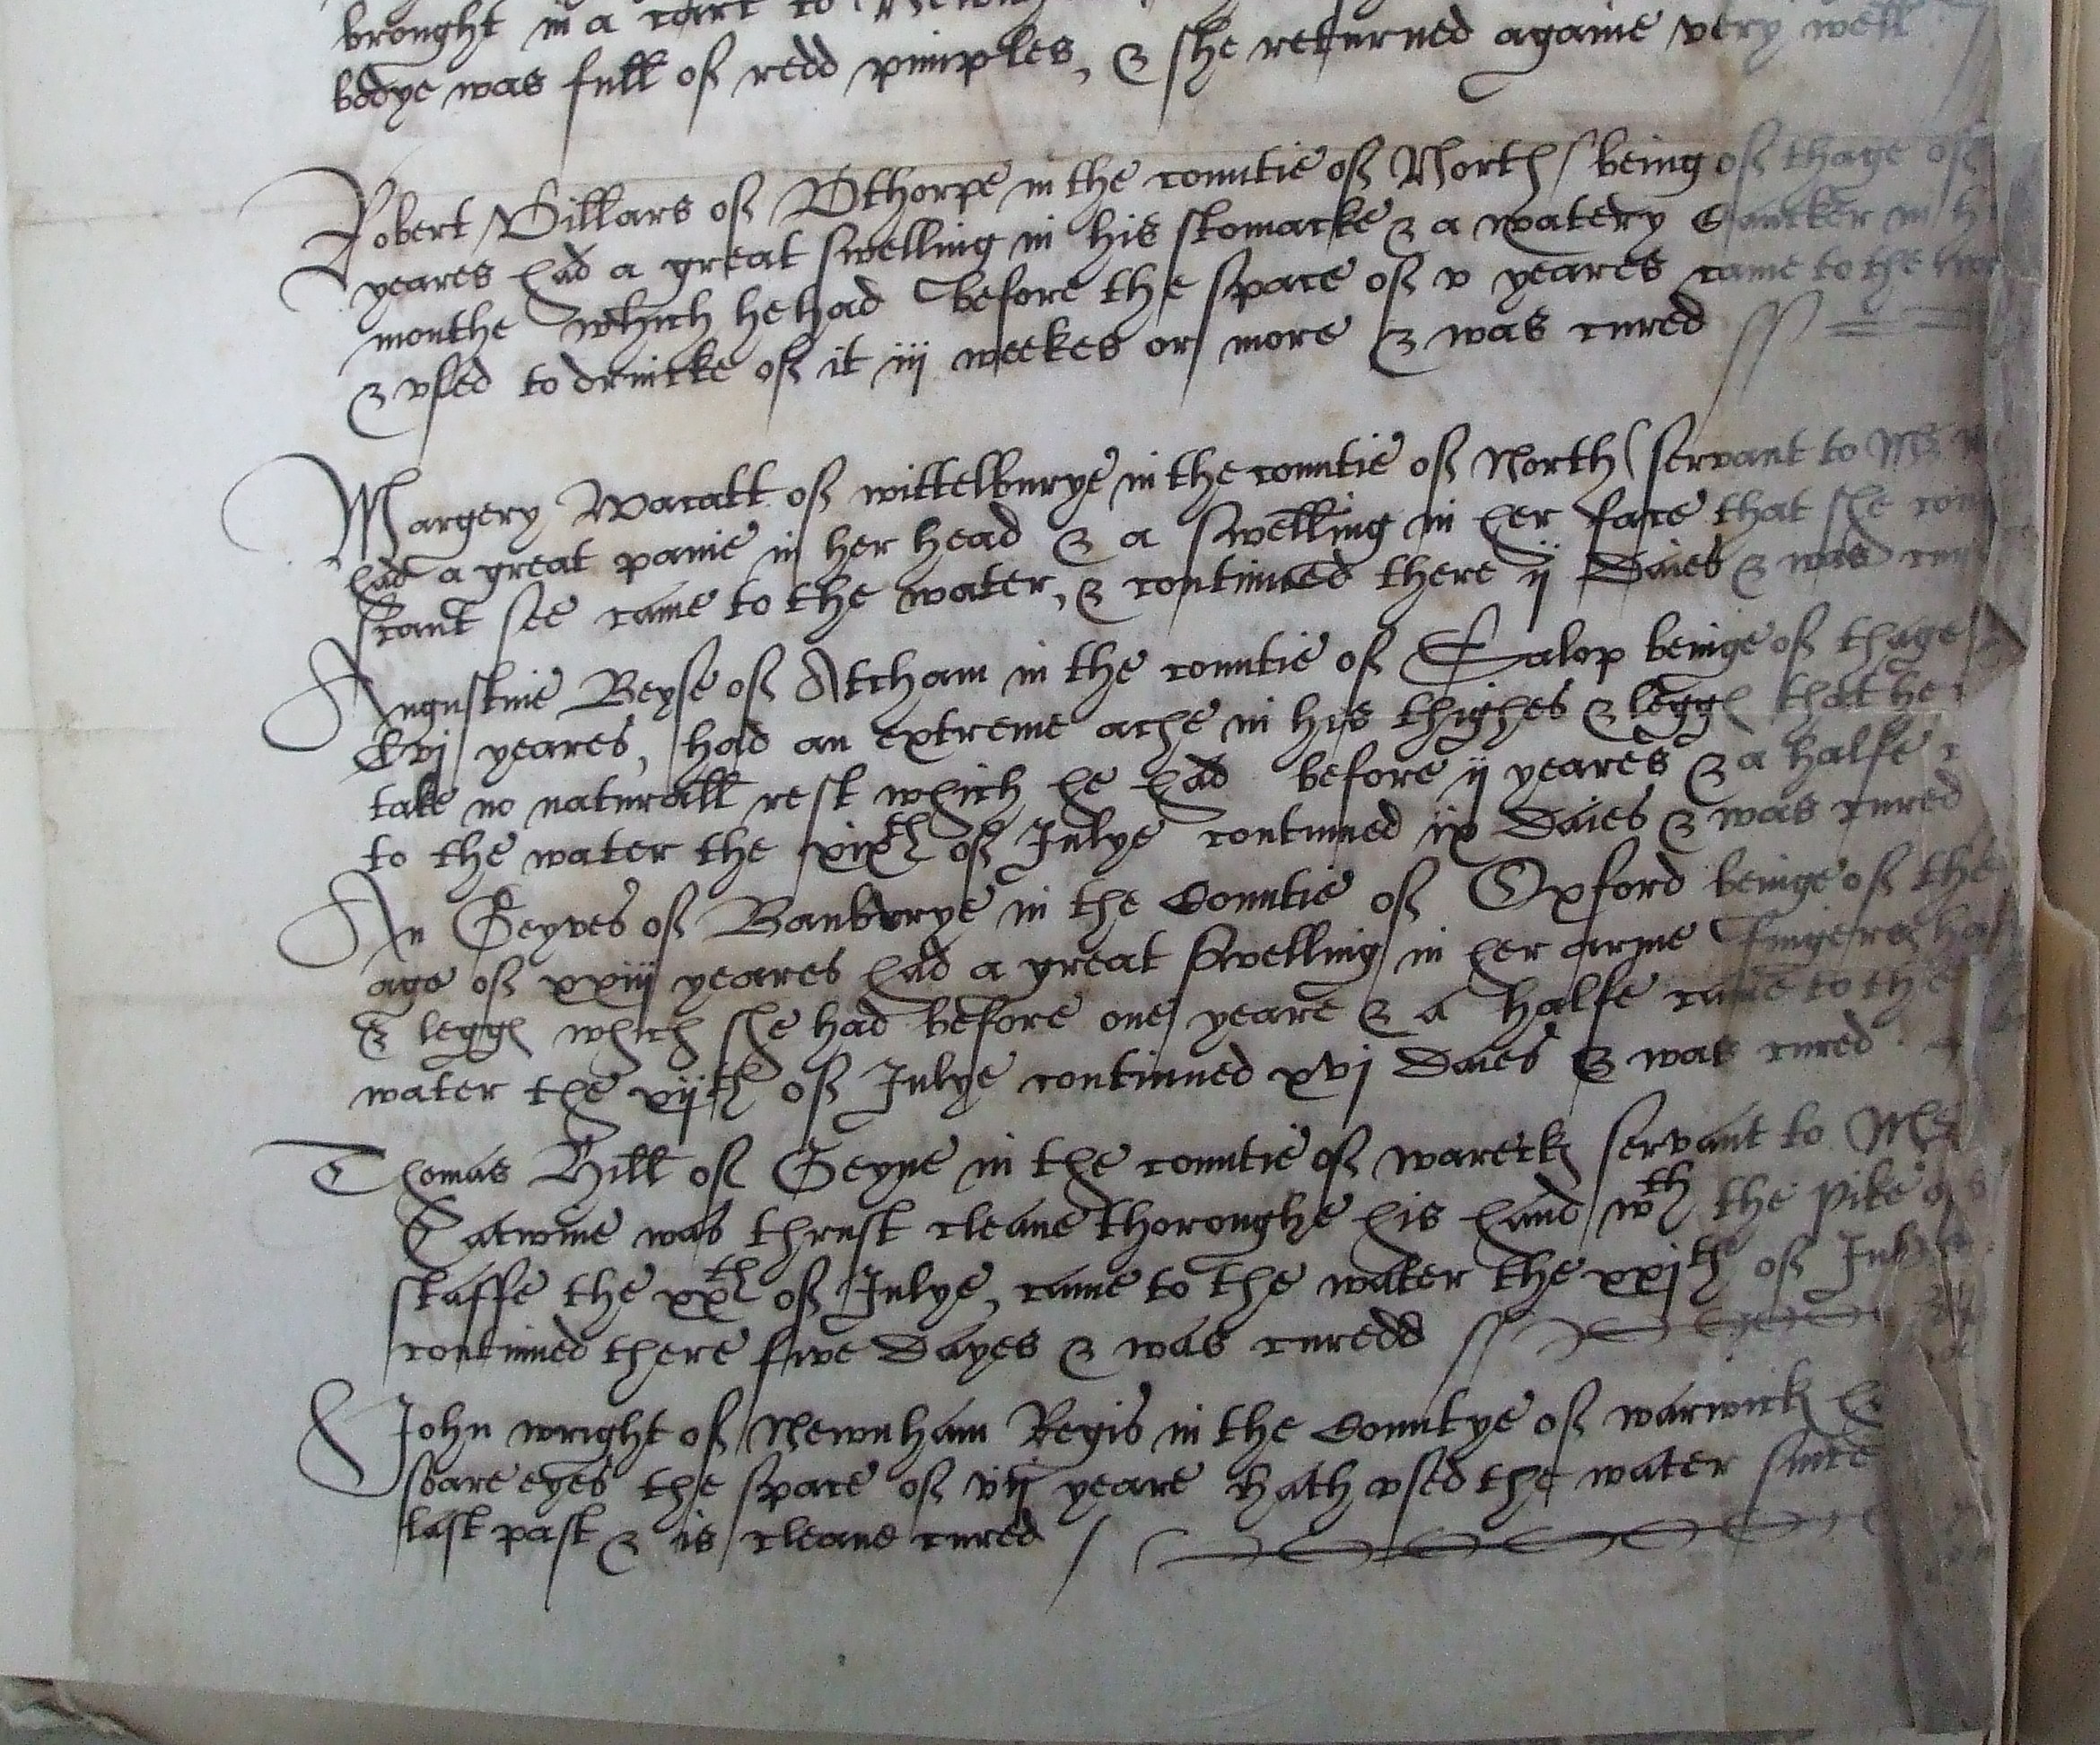 brought in a cart to
bodye was full of redd pimples, & she returned againe very well
Robert Villars of Othorpe in the countie of North being of thage of
yeares had a great swelling in his stomacke & a watery Cancker in
monthe which he had before the space of v yeares came to the
& vsed to drincke of it iij weekes or more & was cured
Margery Wacatt of wittelburye in the countie of North servant to Mr
had a great paine in her head & a swelling in her face that she
scant see came to the water, & continued there ij Daies & was
Augustine Beyse of Atcham in the countie of Salop beinge of thage
lvj yeares, had an extreme ache in his thighes & legg that he
take no naturall rest which he had before ij yeares & a halfe
to the water the xixth of Julye continued ix Daies & was cured
An Geyves of Banburye in the Countie of Oxford beinge of the
age of xxiij yeares had a great swelling in her arme Fingers
& legg which she had before one yeare & a halfe came to the
water the vijth of Julye continued xvj Daies & was cured
Thomas Hill of Geyne in the countie of wareck servant to Mr
Catwine was thrust cleane thoroughe his hand wth the pike
staffe the xxth of Julye, came to the water the xxjth of
continued there five Dayes & was curedd
John wright of Newnham Regis in the Countye of warwick
soare eyes the space of vij yeare hath vsed the water since
last past & is cleane cured